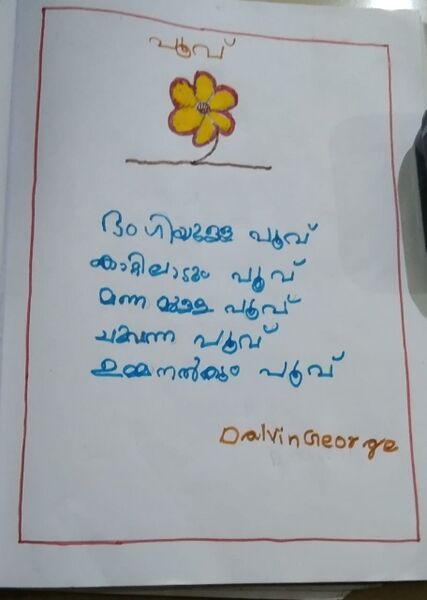 പൂവ്
ഭംഗിയുള്ള പൂവ്
കാറ്റിലാടും പൂവ്
മണമുള്ള പൂവ്
ചുവന്ന പൂവ്
ഉമ്മനൽകും പൂവ്
Dalvin George